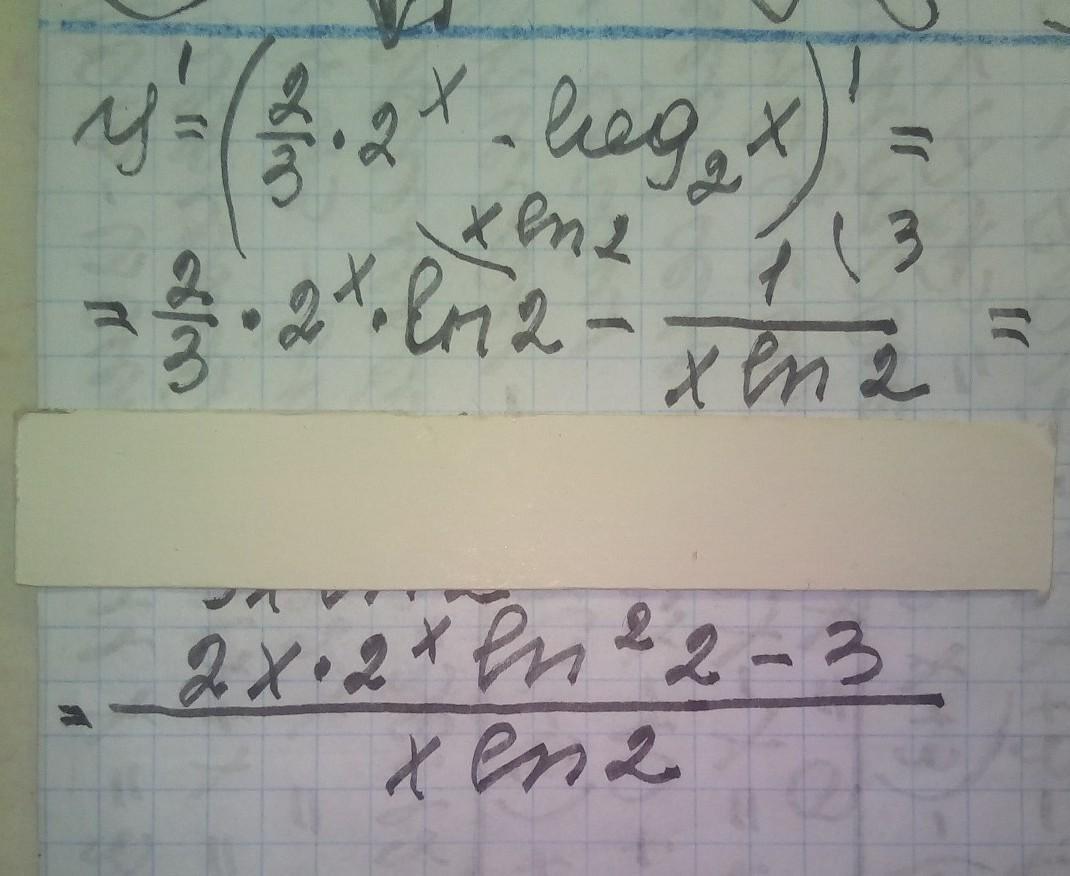 y' = (2/3 · 2^x - log₂ x)' =
x ln 2 ( 3
= 2/3 · 2^x · ln 2 - 1/(x ln 2) =
= (2x · 2^x ln² 2 - 3)/(x ln 2)